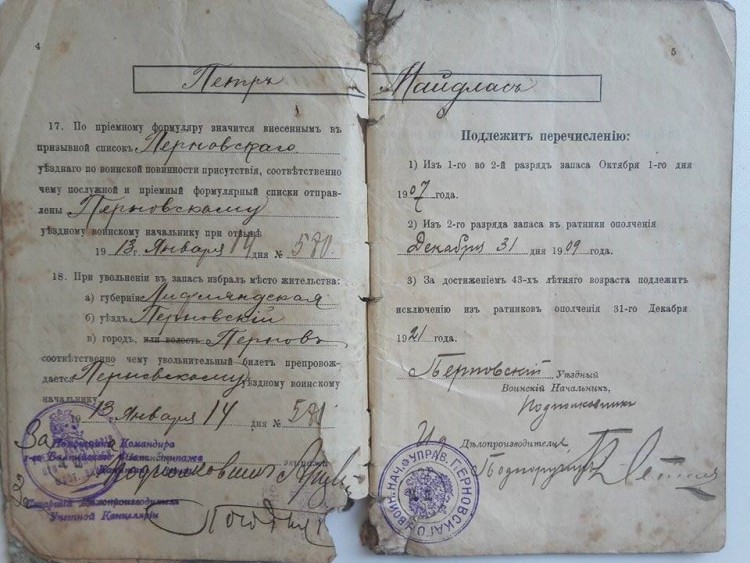 4
Петръ
17. По пріемному формуляру значится внесеннымъ въ
призывной списокъ Перновскаго
уѣзднаго по воинской повинности присутствія, соотвѣтственно
чему послужной и пріемный формулярный списки отправ-
лены Перновскому
уѣздному воинскому начальнику при отзывѣ
1913 г. Января 14 дня № 580.
18. При увольненіи въ запасъ избралъ мѣсто жительства:
а) губернію Лифляндская
б) уѣздъ Перновскій
в) городъ, или волость Перновъ
соотвѣтственно чему увольнительный билетъ препровож-
дается Перновскому уѣздному воинскому
начальнику
1913 г. Января 14 дня № 581
Помощникъ Командира
1-го Балтійскаго Флотскаго Экипажа
Старшій Дѣлопроизводитель
Учетной Канцеляріи
5
Майдласъ
Подлежитъ перечисленію:
1) Изъ 1-го во 2-й разрядъ запаса Октября 1-го дня
1907 года.
2) Изъ 2-го разряда запаса въ ратники ополченія
Декабря 31 дня 1909 года.
3) За достиженіемъ 43-хъ лѣтняго возраста подлежитъ
исключенію изъ ратниковъ ополченія 31-го Декабря
1921 года.
Перновскій Уѣздный
Воинскій Начальникъ,
Подполковникъ
И д Дѣлопроизводителя
Подпоручикъ
УПРАВ. ПЕРНОВСКАГО ВОИН. НАЧ.